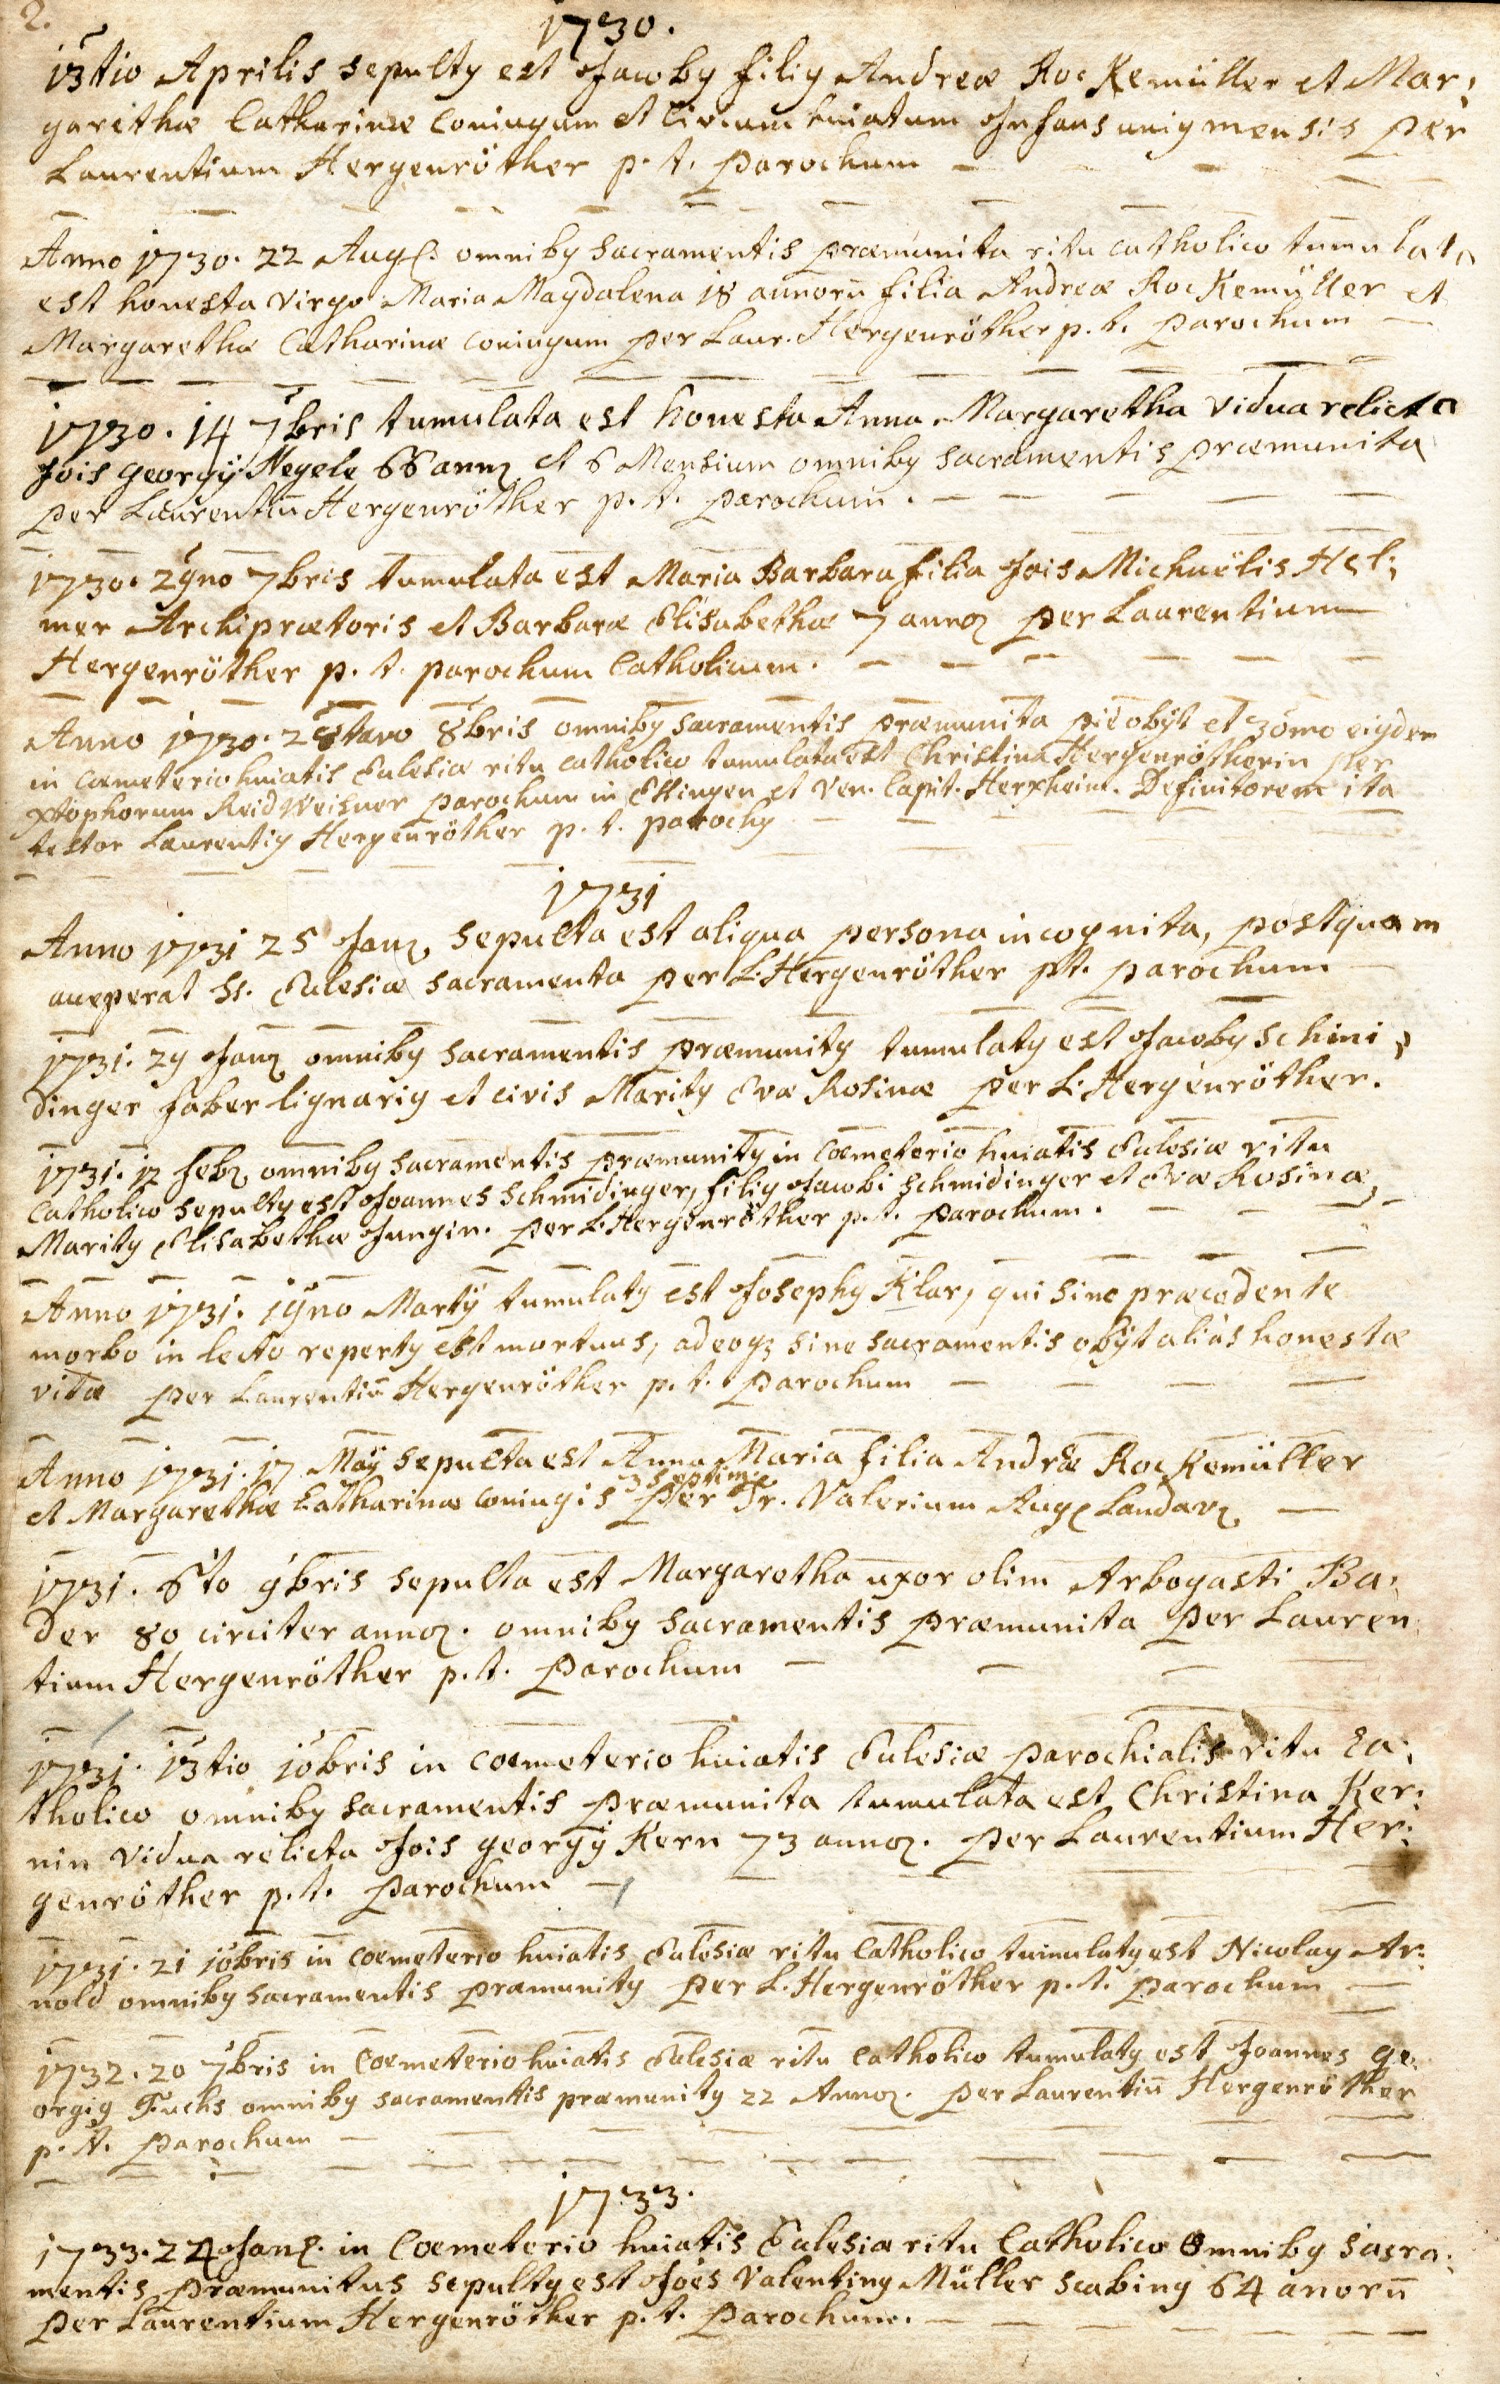 2.
1730.
13tio Aprilis sepultus est Jacobus filius Andreæ Rockemüller et Mar:
garethæ Catharinæ coniugum et civium huiatum Infans unius mensis per
Laurentium Hergenröther p. t. parochum
Anno 1730. 22 Aug. omnibus sacramentis præmunita ritu catholico tumulata
est honesta virgo Maria Magdalena 18 annorū filia Andreæ Rockemüller et
Margarethæ Catharinæ coniugum per Laur. Hergenröther p. t. parochum
1730. 14 7bris tumulata est honesta Anna Margaretha vidua relicta
Jois georgÿ Negele 66 annoꝝ et 6 Mensium omnibus sacramentis præmunita
per Laurentiū Hergenröther p. t. parochum.
1730. 29no 7bris tumulata est Maria Barbara filia Jois Michaëlis Hel:
mer Archiprætoris et Barbaræ Elisabethæ 7 annoꝝ per Laurentium
Hergenröther p. t. parochum Catholicum.
Anno 1730. 28tavo 8bris omnibus sacramentis præmunita pie obÿt et 30mo eiusdem
in cœmeterio huiatis Eclesiæ ritu catholico tumulata est Christina Hergenrötherin per
Xtophorum Reidweisner parochum in Essingen et Ven. Capit. Herxheim. Definitorem ita
testor Laurentius Hergenröther p. t. parochus
1731
Anno 1731 25 Janꝝ sepulta est aliqua persona incognita, postquam
acceperat SS. Eclesiæ sacramenta per L. Hergenröther pt. parochum
1731. 29 Janꝝ omnibus sacramentis præmunitus tumulatus est Jacobus Schmi:
dinger faber lignarius et civis Maritus Evæ Rosinæ per L. Hergenröther.
1731. 12 Febꝝ omnibus sacramentis præmunitus in cœmeterio huiatis Eclesiæ ritu
Catholico sepultus est Joannes Schmidinger, filius Jacobi Schmidinger et Evæ Rosinæ,
Maritus Elisabethæ Jungin. per L. Hergenröther p. t. parochum.
Anno 1731. 19no Martÿ tumulatus est Josephus Klar, qui sine præcedente
morbo in lecto repertus est mortuus, adeoqꝫ sine sacramentis obÿt aliàs honestæ
vitæ per Laurentiū Hergenröther p. t. parochum
Anno 1731. 17 Maÿ sepulta est Anna Maria filia Andræ Rockemüller
3 septim:
et Margarethæ Catharinæ coniugis per Fr. Valerium Aug. Landavꝝ
1731. 6to 9bris sepulta est Margaretha uxor olim Arbogasti Ba:
der 80 circiter annoꝝ. omnibus sacramentis præmunita per Lauren
tium Hergenröther p. t. parochum
1731. 13tio 10bris in cœmeterio huiatis Eclesiæ parochialis ritu Ca:
tholico omnibus sacramentis præmunita tumulata est Christina Ker:
nin vidua relicta Jois georgÿ Kern 73 annoꝝ. per Laurentium Her:
genröther p. t. parochum
1731. 21 10bris in cœmeterio huiatis Eclesiæ ritu Catholico tumulatus est Nicolaus Ar:
nold omnibus sacramentis præmunitus per L. Hergenröther p. t. parochum
1732. 20 7bris in Cœmeterio huiatis Eclesiæ ritu Catholico tumulatus est Joannes ge:
orgius Fuchs omnibus sacramentis præmunitus 22 Annoꝝ. per Laurentiū Hergenröther
p. t. parochum
1733.
1733. 24 Janꝝ. in Cœmeterio huiatis Eclesiæ ritu Catholico omnibus sacra:
mentis præmunitus sepultus est Joës Valentinus Müller scabinus 64 anorū
per Laurentium Hergenröther p. t. parochum.